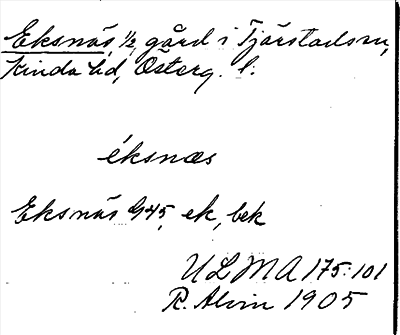 Eksnäs, 1/2 gård i Tjärstads sn,
Kinda hd, Österg. l:
éksnæs
Eksnäs G45, ek, bek
ULMA 175:101
R. Alvin 1905